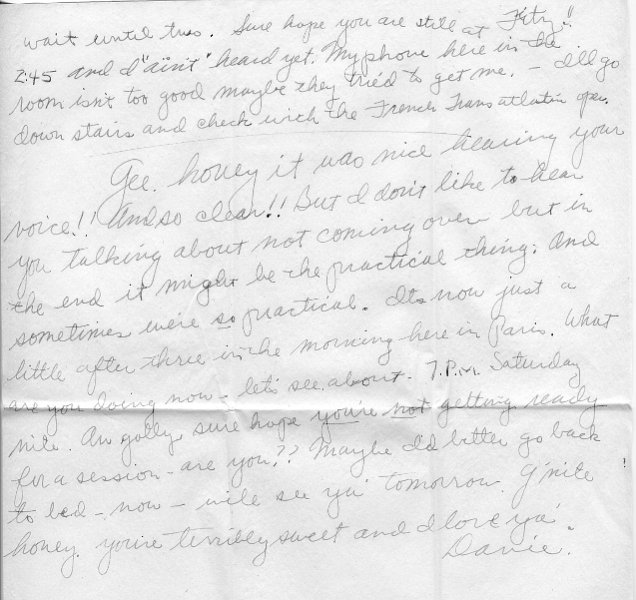 wait until two. Sure hope you are still at Fitz!!
2:45 and I "ain't" heard yet. My phone here in the
room isn't too good maybe they tried to get me. - I'll go
down stairs and check with the French Trans atlantic oper.
Gee. honey it was nice hearing your
voice!! And so clear!! But I don't like to hear
you talking about not coming over but in
the end it might be the practical thing. And
sometimes we're so practical. Its now just a
little after three in the morning here in Paris. What
are you doing now - let's see about - 7 P.M. Saturday
nite. Aw golly, sure hope you're not getting ready
for a session - are you?? Maybe I'd better go back
to bed - now - will see ya' tomorrow. G'nite
honey. you're terribly sweet and I love ya'.
Davie.